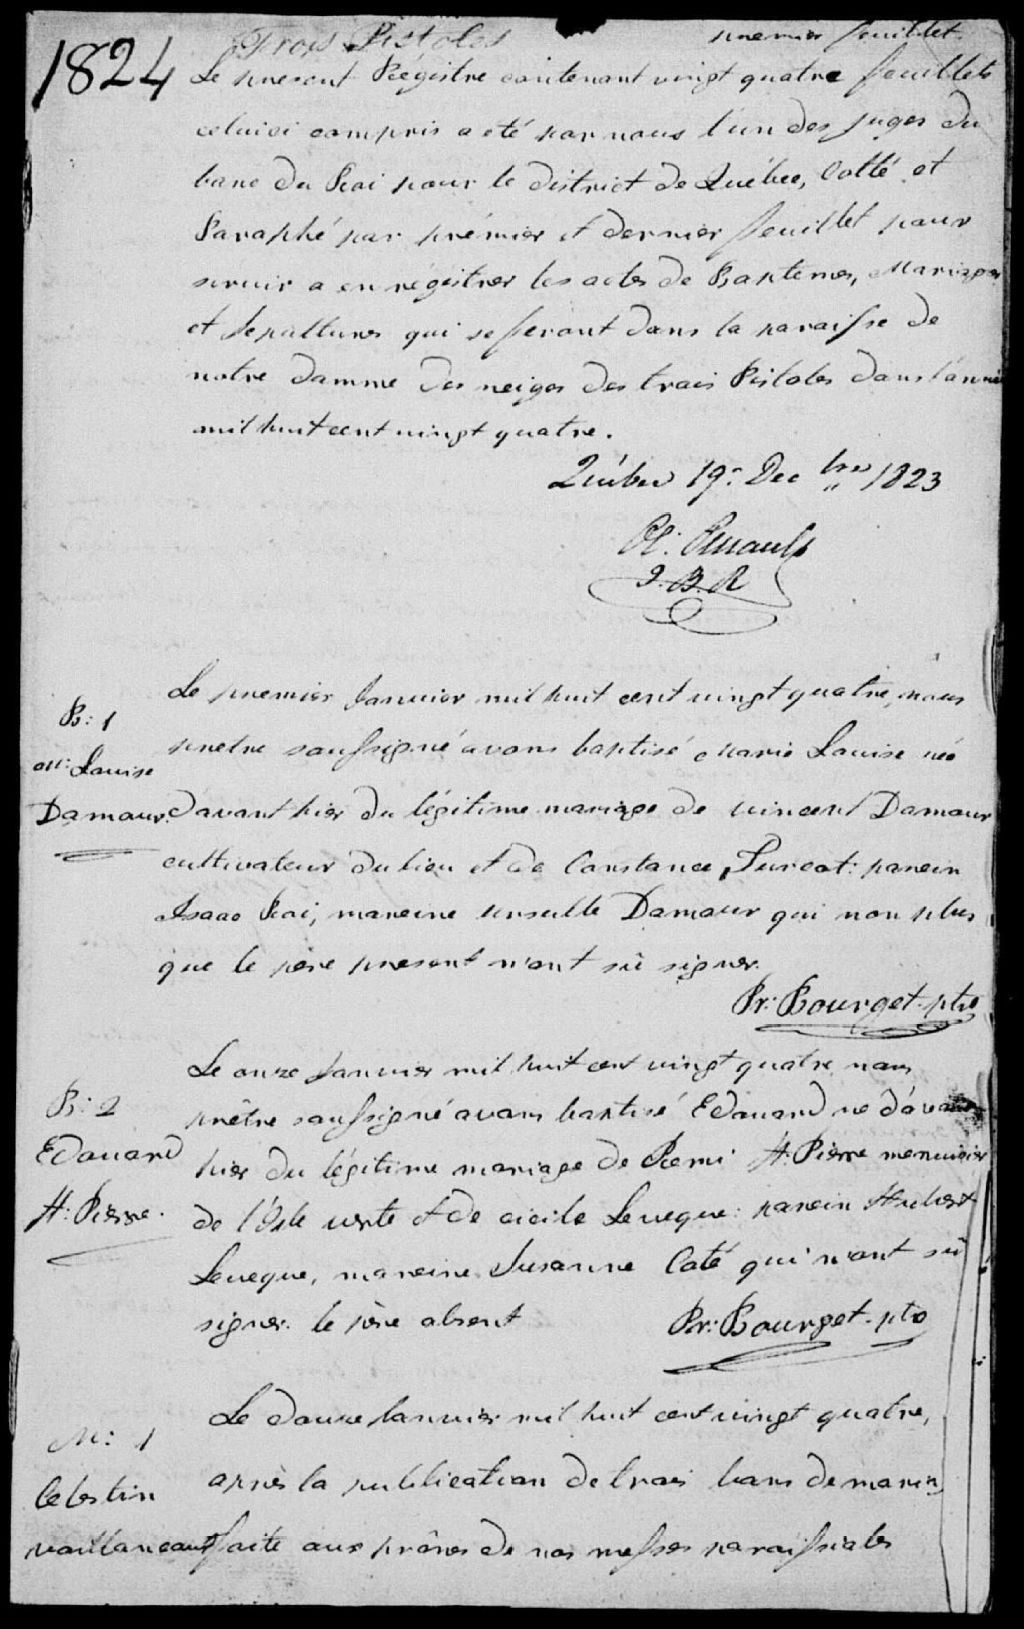 1824
Trois Pistoles
premier feuillet.
Le present Régistre contenant vingt quatre feuillets
celuici compris a eté par nous l'un des juges du
banc du Roi pour le district de Québec, Cotté et
Paraphé par prémier et dernier feuillet pour
servir a en régistrer les actes de Baptemes, Mariages
et Sepultures qui se feront dans la paraisse de
notre damme des neiges des trois Pistoles dans l'année
mil huit cent vingt quatre.
Québec 19: Decbre 1823
Ol: Perrault
J.B.R
Le premier Janvier mil huit cent vingt quatre, nous
B: 1
pretre soussigné avons baptisé Marie Louise née
M: Louise
Damour davant hier du légitime mariage de vincent Damour
cultivateur du lieu et de Constance Pureat: parein
Isaac Roi, mareine ursulle Damour qui non plus
que le père present n'ont sù signer.
Pr: Bourget. ptre
Le onze Janvier mil huit cent vingt quatre nous
B: 2
prêtre soussigné avons baptisé Edouard né d'avant
Edouard
hier du légitime mariage de Remi St: Pierre menuisier
St: Pierre.
de l'Isle verte et de cicile Leveque: parein Hubert
Leveque, mareine Susanne Coté qui n'ont sù
signer. le père absent
Pr: Bourget. ptre
Le douze Janvier mil huit cent vingt quatre,
M: 1
après la publication de trois bans de mariage
Celestin
vaillancourt faite aux prônes de nos messes paroissiales